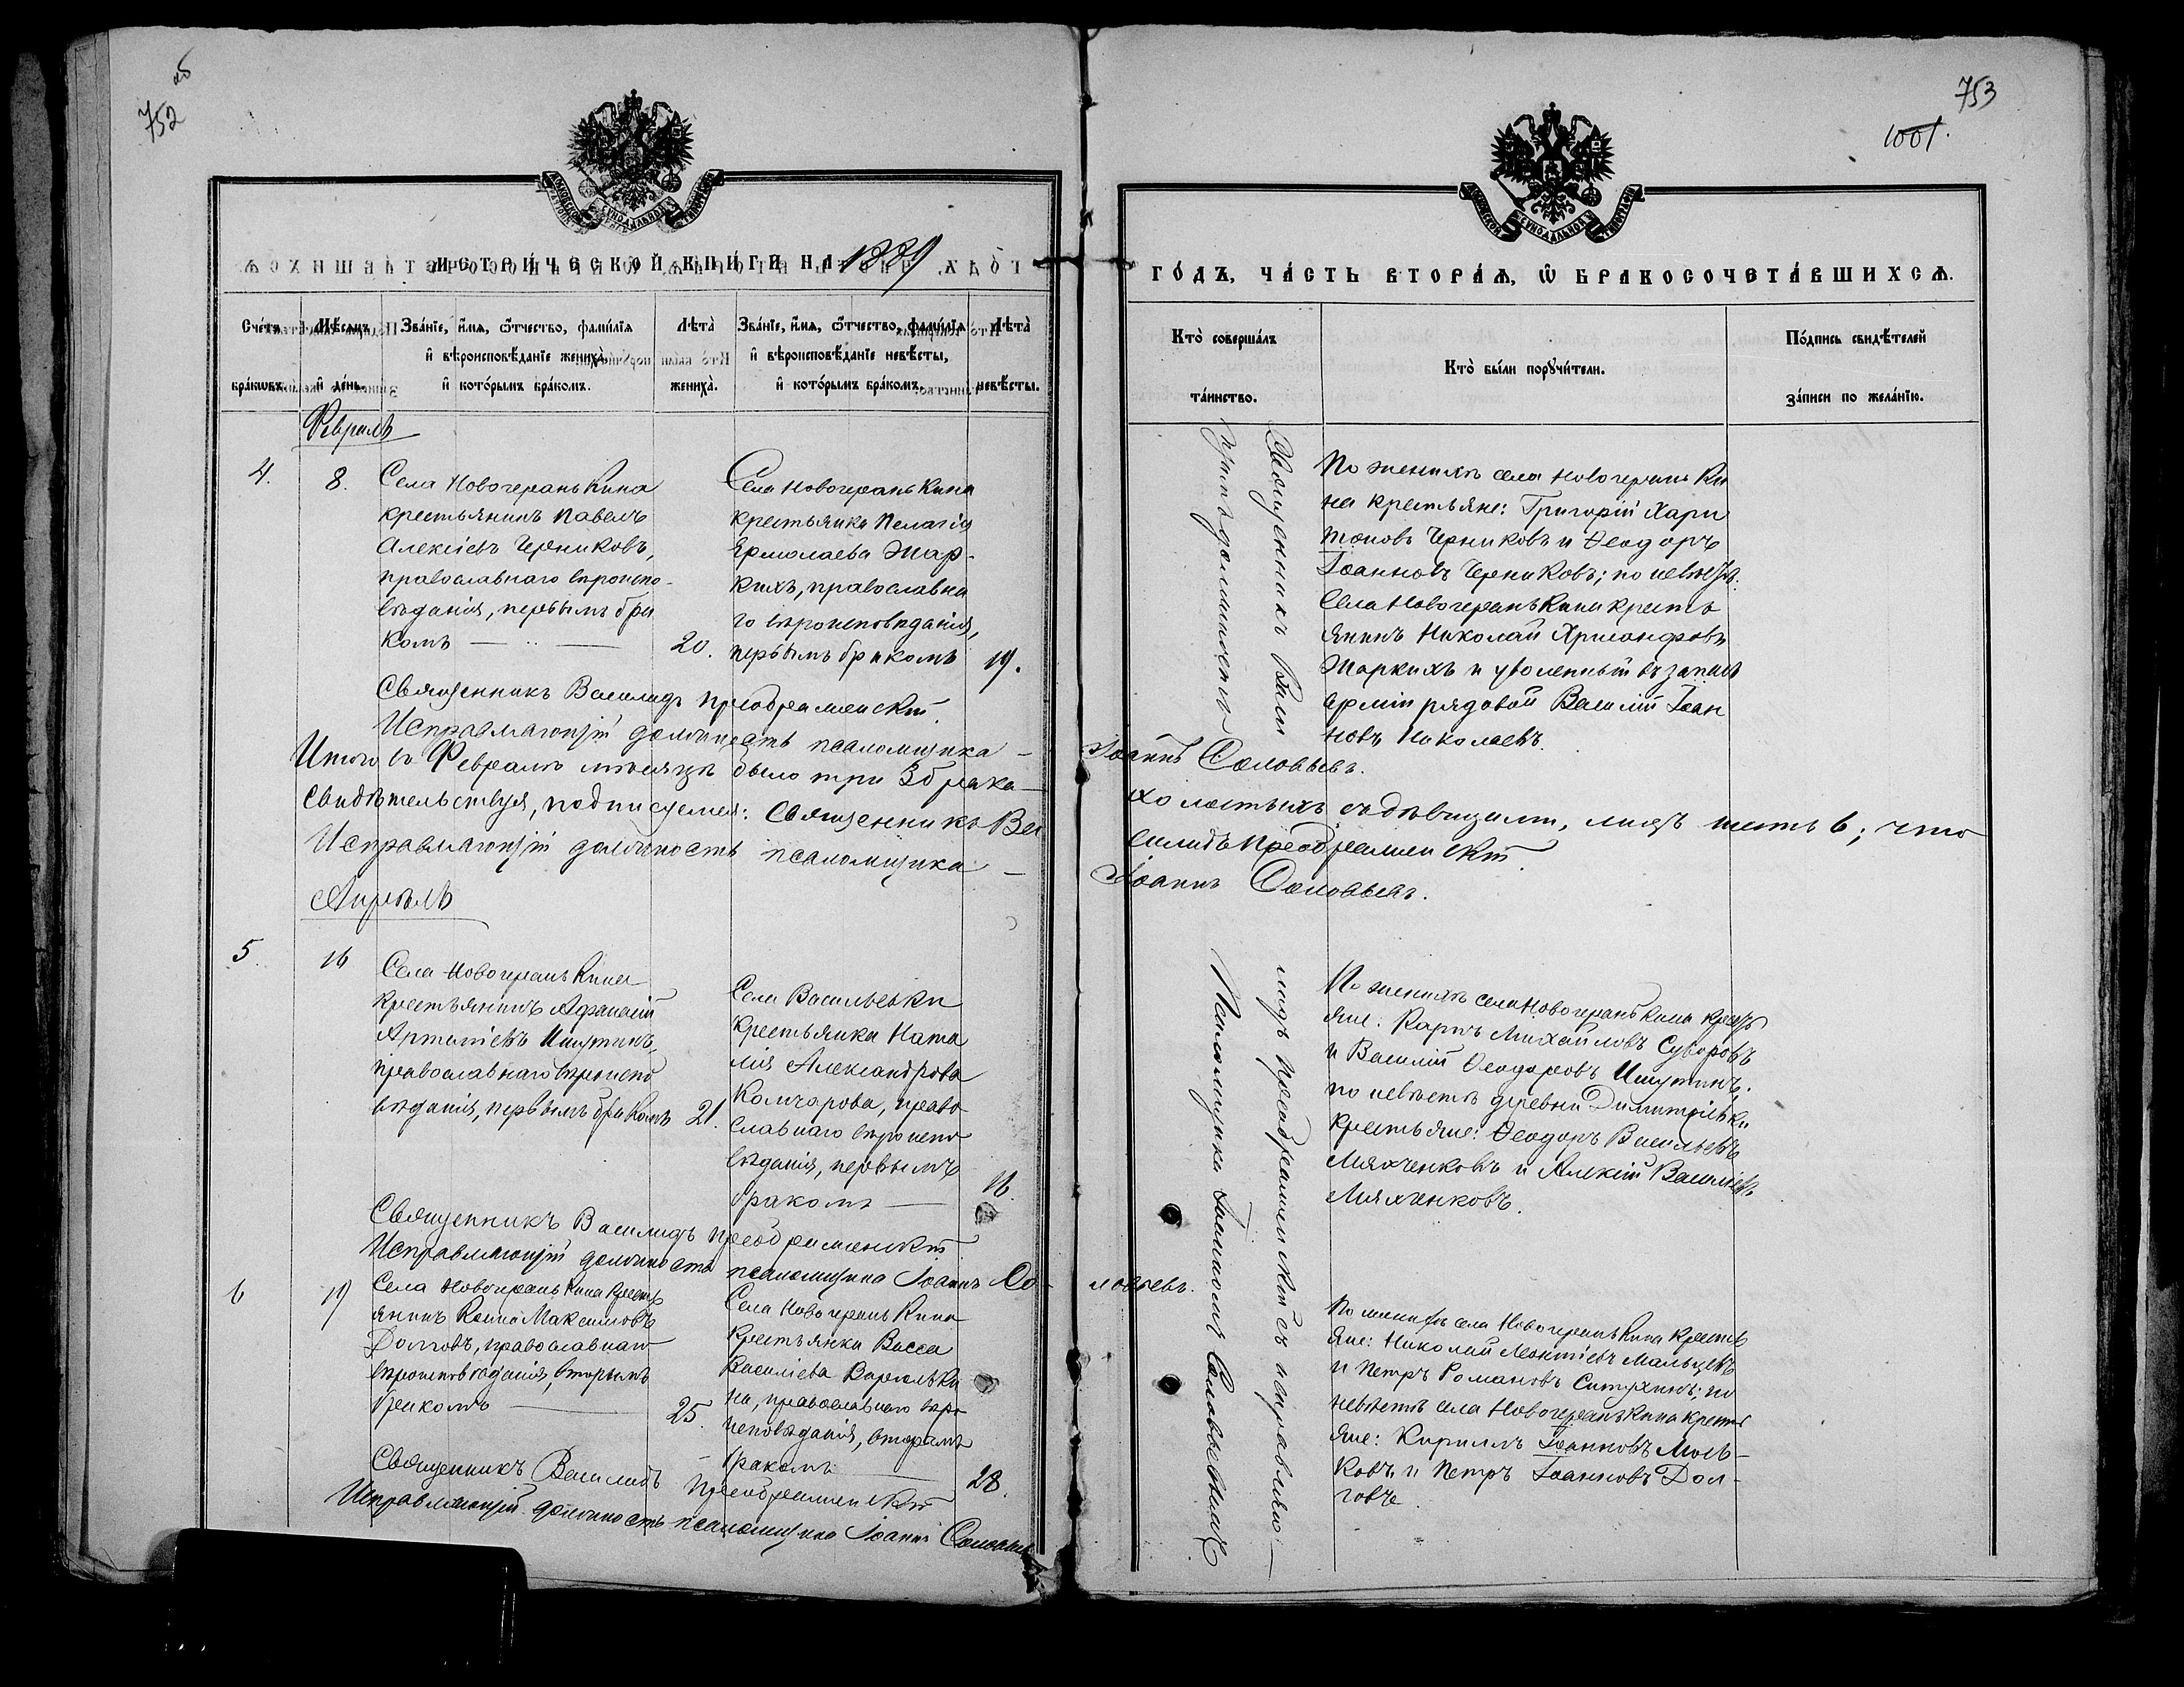 752
об
МОСКОВСКОЙ СѴНОДАЛЬНОЙ ТИПОГРАФІИ
МЕТРИЧЕСКОЙ КНИГИ НА 1889
Счетъ браковъ.
Мѣсяцъ и день.
Званіе, имя, отчество, фамилія и вѣроисповѣданіе жениха, и которымъ бракомъ.
Лѣта жениха.
Званіе, имя, отчество, фамилія и вѣроисповѣданіе невѣсты, и которымъ бракомъ.
Лѣта невѣсты.
Февраль
4.
8.
Села Новогеранькина
крестьянинъ Павелъ
Алексіевъ Черниковъ,
православнаго вѣроиспо-
вѣданія, первымъ бра
комъ —
20.
Села Новогеранькина
крестьянка Пелагія
Ярмолаева Жар-
кихъ, православна
го вѣроисповѣданія,
первымъ бракомъ
19.
Священникъ Василидъ Преображенскій.
Исправляющій должность псаломщика —
Итого въ Февралѣ мѣсяцѣ было три 3 брака —
Свидѣтельствуя, подписуемся: Священникъ Ва
Исправляющій должность псаломщика —
Апрѣль
5.
16
Села Новогеранькина
крестьянинъ Афанасій
Артеміевъ Ишутинъ,
православнаго вѣроиспо
вѣданія, первымъ бракомъ
21.
Села Васильевки
крестьянка Ната
лія Александрова
Комчарова, право
славнаго вѣроиспо
вѣданія, первымъ
бракомъ —
16.
Священникъ Василидъ Преображенскій
Исправляющій должность псаломщика Іоаннъ Со-
6
19
Села Новогеранькина кресть
янинъ Косма Максимовъ
Долговъ, православнаго
вѣроисповѣданія, вторымъ
бракомъ —
25.
Села Новогеранькина
крестьянка Васса
Василіева
на, православнаго вѣро
исповѣданія, вторымъ
бракомъ —
28.
Священникъ Василидъ Преображенскій
Исправляющій должность псаломщика Іоаннъ Соловьевъ
753
1001.
МОСКОВСКОЙ СѴНОДАЛЬНОЙ ТИПОГРАФІИ
ГОДЪ, ЧАСТЬ ВТОРАЯ, Ѡ БРАКОСОЧЕТАВШИХСЯ.
Кто совершалъ таинство.
Кто были поручители.
Подпись свидѣтелей записи по желанію.
Священникъ Васи
лидъ Преображенскій съ исправляю —
щимъ должность
Псаломщика Іоанномъ Соловьевымъ
По женихѣ села Новогераньки
на крестьяне: Григорій Хари
тоновъ Черниковъ и Ѳеодоръ
Іоанновъ Черниковъ; по невѣстѣ
Села Новогеранькина кресть
янинъ Николай Хрисанфовъ
Жаркихъ и уволенный въ запасъ
арміи рядовой Василій Іоан
новъ Николаевъ.
Іоаннъ Соловьевъ.
холостыхъ съ дѣвицами, лицъ шесть 6; что
силидъ Преображенскій
Іоаннъ Соловьевъ.
По женихѣ села Новогеранькина кресть
яне: Карпъ Михайловъ Суворовъ
и Василій Ѳеодоровъ Ишутинъ;
по невѣстѣ деревни Димитріевки
крестьяне: Ѳеодоръ Васильевъ
Ляхченковъ и Алексій Василіевъ
Ляхченковъ.
ловьевъ.
По женихѣ села Новогеранькина кресть
яне: Николай Леонтіевъ Мальцевъ
и Петръ Романовъ Ситухинъ; по
невѣстѣ села Новогеранькина кресть
яне: Кириллъ Іоанновъ Моль-
ковъ и Петръ Іоанновъ Дол-
говъ.